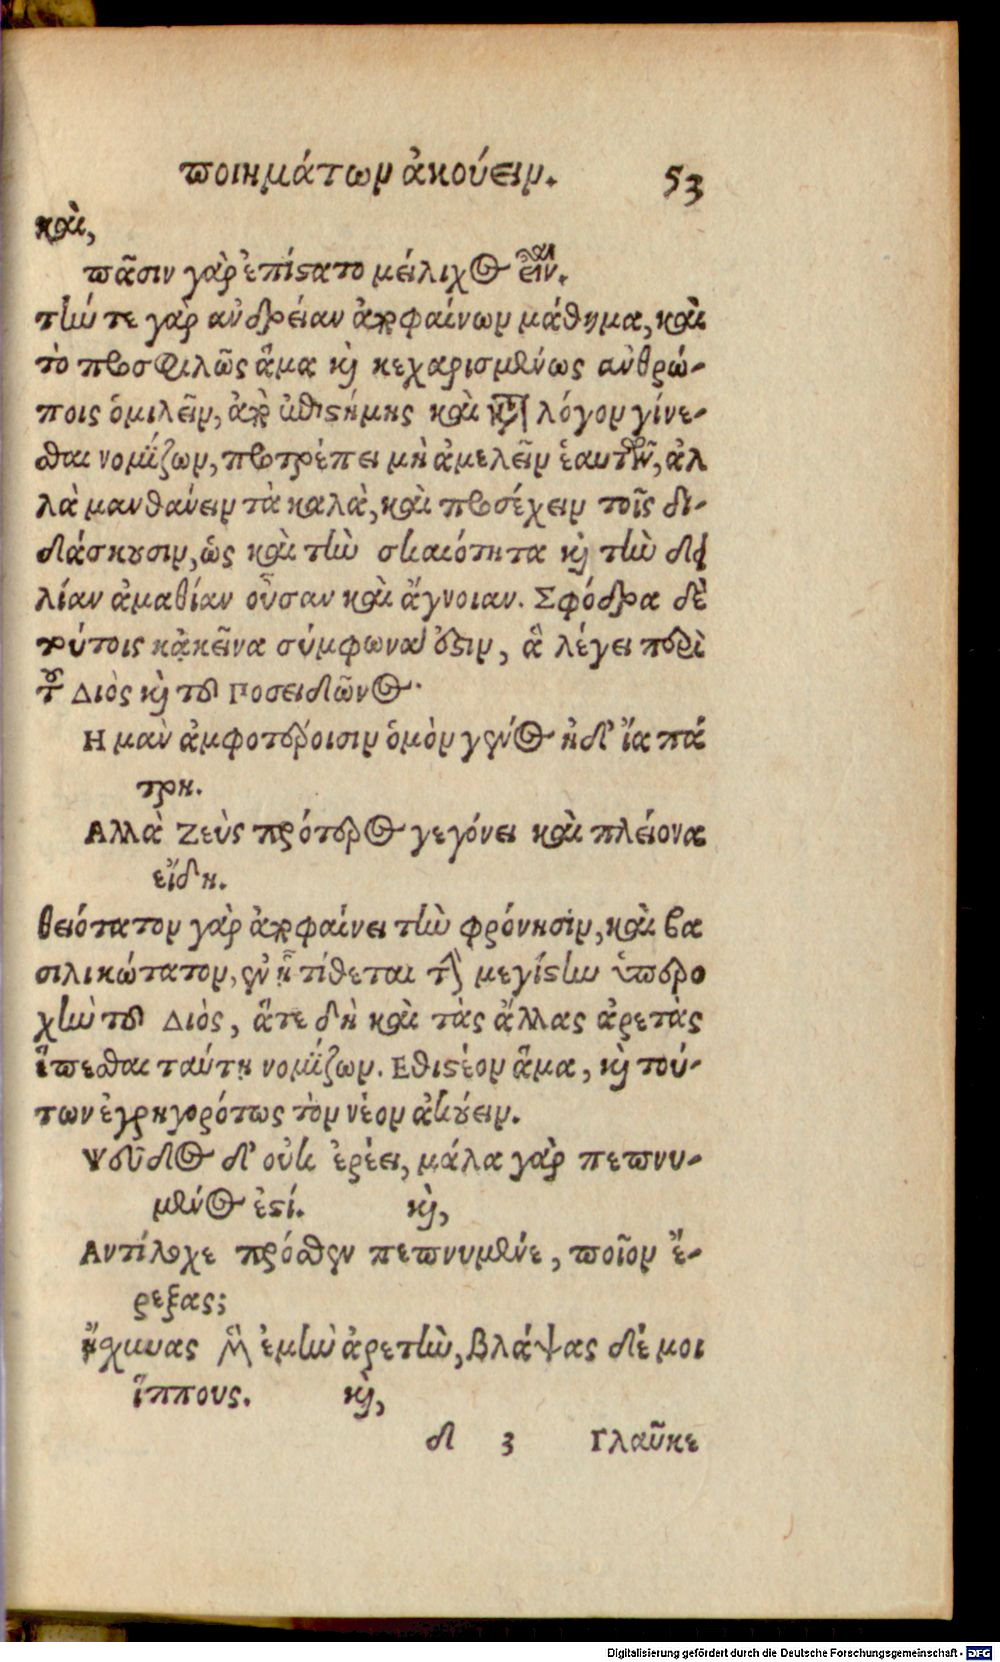 ποιημάτων ἀκούειν. 53
καὶ,
πᾶσιν γὰρ ἐπίςατο μείλιχος εἶναι.
τὴν τε γὰρ ἀνδρείαν ἀποφαίνων μάθημα, καὶ
τὸ προσφιλῶς ἅμα καὶ κεχαρισμένως ἀνθρώ-
ποις ὁμιλεῖν, ἀπ᾽ ἐπιςήμης καὶ κατὰ λόγον γίνε-
σθαι νομίζων, προτρέπει μὴ ἀμελεῖν ἑαυτῶν, ἀλ
λὰ μανθάνειν τὰ καλὰ, καὶ προσέχειν τοῖς δι-
δάσκουσιν, ὡς καὶ τὴν σκαιότητα καὶ τὴν δει
λίαν ἀμαθίαν οὖσαν καὶ ἄγνοιαν. Σφόδρα δὲ
τούτοις κᾀκεῖνα σύμφωνα ἐςιν, ἃ λέγει περὶ
τοῦ Διὸς καὶ τοῦ Ποσειδῶνος.
Η μὰν ἀμφοτέροισιν ὁμὸν γένος ἠδ᾽ ἴα πά
τρη.
Αλλὰ Ζεὺς πρότερος γεγόνει καὶ πλείονα
εἴδη.
θειότατον γὰρ ἀποφαίνει τὴν φρόνησιν, καὶ βα
σιλικώτατον, ἐν ᾗ τίθεται τὴν μεγίςην ὑπερο
χὴν τοῦ Διὸς, ἅτε δὴ καὶ τὰς ἄλλας ἀρετὰς
ἕπεσθαι ταύτῃ νομίζων. Εθιςέον ἅμα, καὶ τού-
των ἐγρηγορότως τὸν νέον ἀκούειν.
Ψεῦδος δ᾽ οὐκ ἐρέει, μάλα γὰρ πεπνυ-
μένος ἐςί. καὶ,
Αντίλοχε πρόσθεν πεπνυμένε, ποῖον ἔ-
ρεξας;
ᾔσχυνας μὲν ἐμὴν ἀρετὴν, βλάψας δέ μοι
ἵππους. καὶ,
d 3 Γλαῦκε
Digitalisierung gefördert durch die Deutsche Forschungsgemeinschaft - DFG